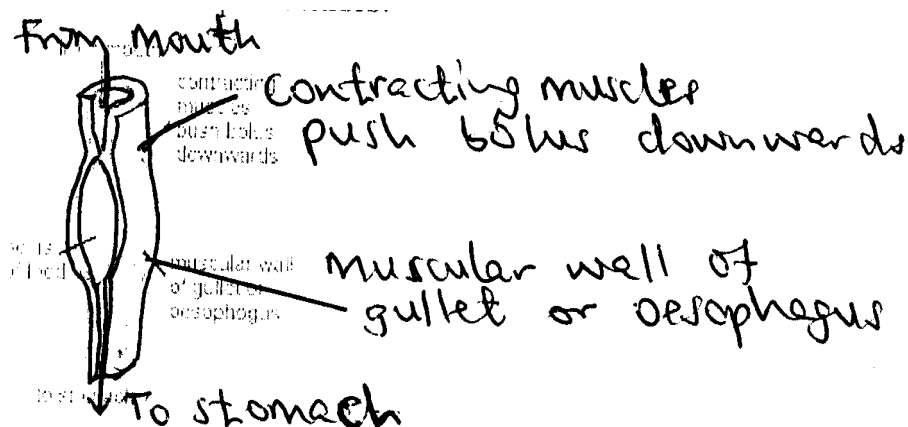 From mouth
contracting
muscles
push bolus
downwards
contracting muscles
push bolus downwards
muscular wall
of gullet or
oesophogus
muscular wall of
gullet or oesophagus
To stomach